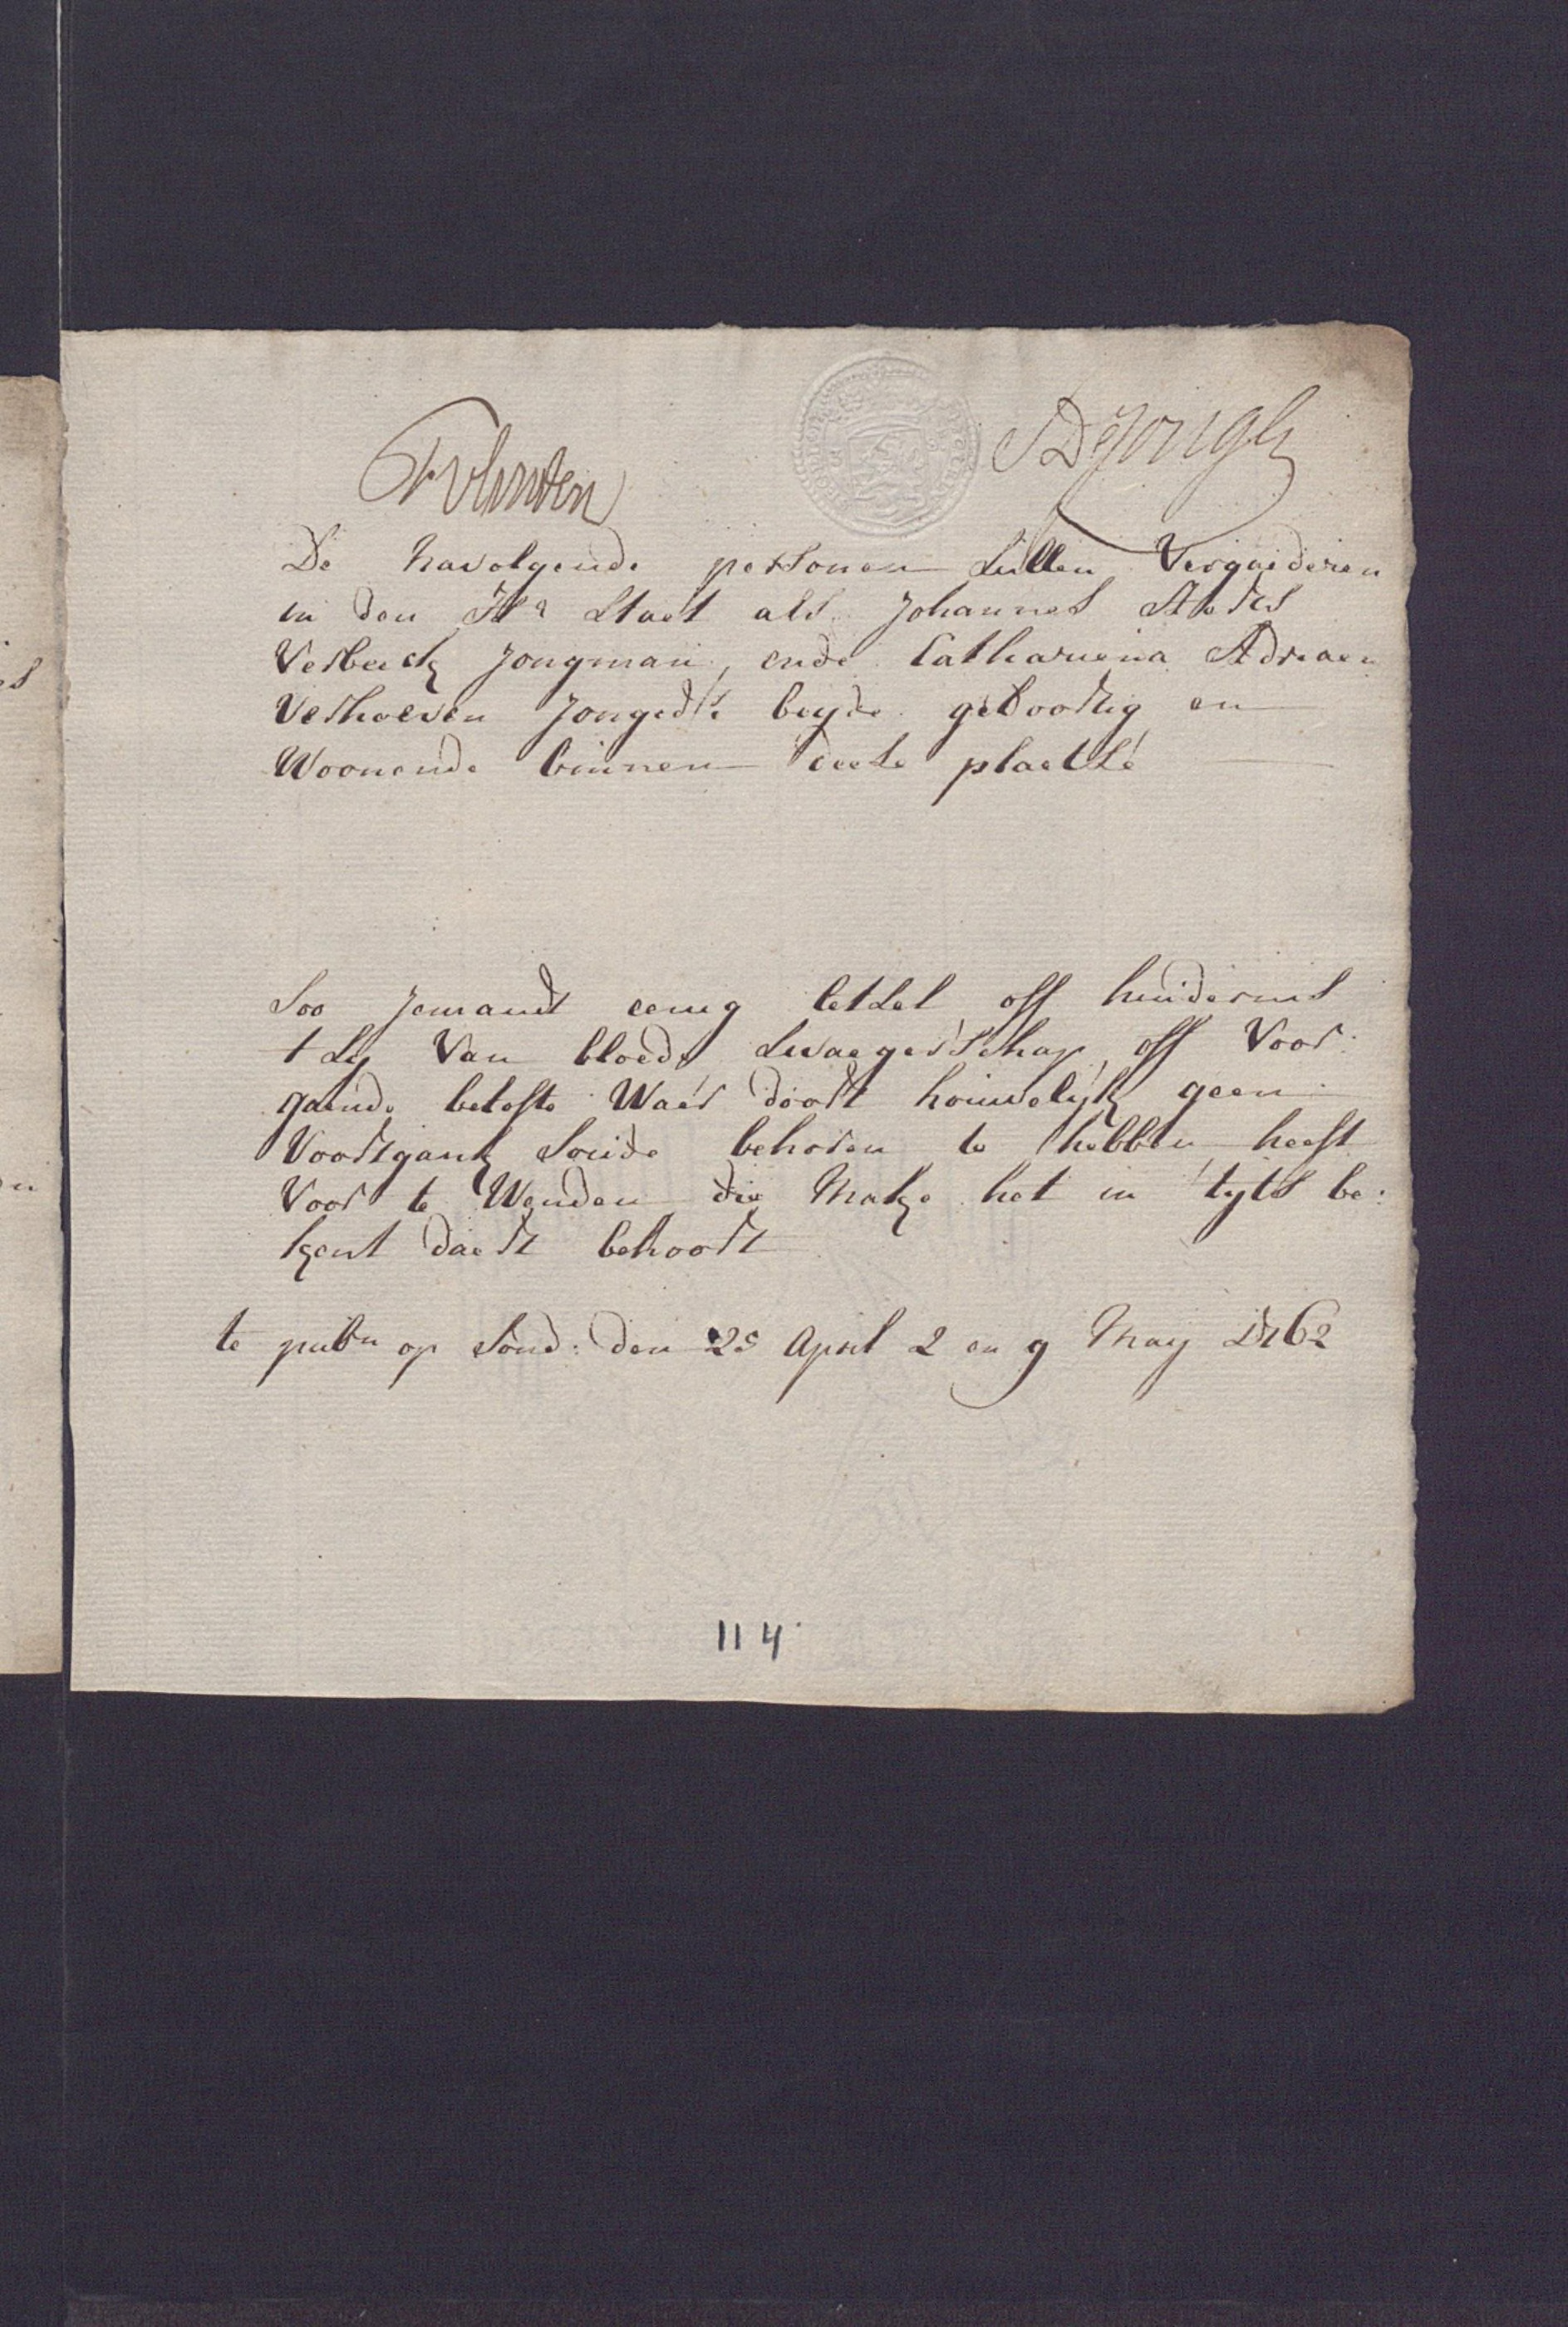 SDeJongh
De navolgende personen sullen vergaederen
in den H: staet als Johannes
Verbeeck jongman, ende Catharuena Adriaen
Verhoeven Jongedr: beyde geboortig en
Woonende binnen deese plaetse
Soo jemandt eenig letsel off hindernis
t sy van bloede swaegerschap, off voor:
gaende belofte waer door't houwelijk geen
voortgank soude behoren te hebben heeft
voor te wenden die make het in tyts be:
kent daer't behoort
te pubn op sond: den 25 April 2 en 9 May 1762
114